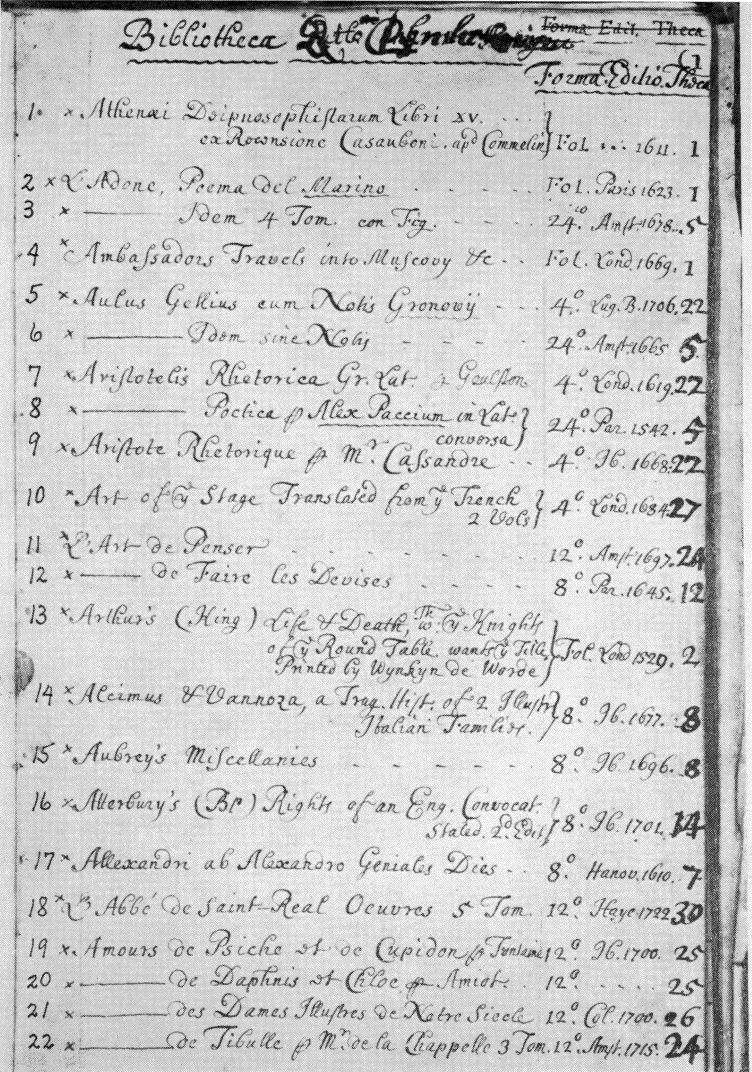 Bibliotheca Forma Edit. Theca
G
Forma. Editio. Theca
1. x Athenæi Deipnosophistarum Libri XV. . . .
ex Recensione Casauboni. apd Commelin} Fol . . . 1611. 1
2 x L'Adone, Poema del Marino - - - - - Fol. Paris 1623. 1
3 x ——— Idem 4 Tom. con Fig. - - - 24to Amst. 1678. 5
4 x Ambassadors Travels into Muscovy &c - - Fol. Lond. 1669. 1
5 x Aulus Gellius cum Notis Gronovij - - - 4o. Lug. B. 1706. 22
6 x ——— Idem sine Notis - - - - 24o. Amst. 1665 5
7 x Aristotelis Rhetorica Gr. Lat. p Goulston. 4o. Lond. 1619. 22
8 x ——— Poetica p Alex Paccium in Lat.
conversa} 24o. Par. 1542. 5
9 x Aristote Rhetorique p Mr. Cassandre - - 4o. Ib. 1668. 22
10 x Art of ye Stage Translated from ye French
2 Vols} 4o. Lond. 1684. 27
11 x L'Art de Penser - - - - - - 12o. Amst. 1697. 24
12 x ——— de Faire les Devises - - - - 8o. Par. 1645. 12
13 x Arthur's (King) Life & Death, wth. ye Knights
of ye Round Table. wants ye Title.
Printed by Wynkyn de Worde} Fol. Lond 1529. 2
14 x Alcimus & Vannoza, a Trag. Hist. of 2 Illustr
Italian Families.} 8o. Ib. 1677. 8
15 x Aubrey's Miscellanies - - - - - 8o. Ib. 1696. 8
16 x Atterbury's (Bp) Rights of an Eng. Convocat.
Stated. 2d. Edit} 8o. Ib. 1701. 14
17 x Allexandri ab Alexandro Geniales Dies - - 8o. Hanov. 1610. 7
18 x L'Abbé de Saint-Real Oeuvres 5 Tom. 12o. Haye 1722 30
19 x Amours de Psiche et de Cupidon p Funtaine 12o. Ib. 1700. 25
20 x ——— de Daphnis et Chloe p Amiot. . 12o. . . . . . 25
21 x ——— des Dames Illustres de Notre Siecle 12o. Col. 1700. 26
22 x ——— de Tibulle p Mr. de la Chappelle 3 Tom. 12o. Amst. 1715. 24